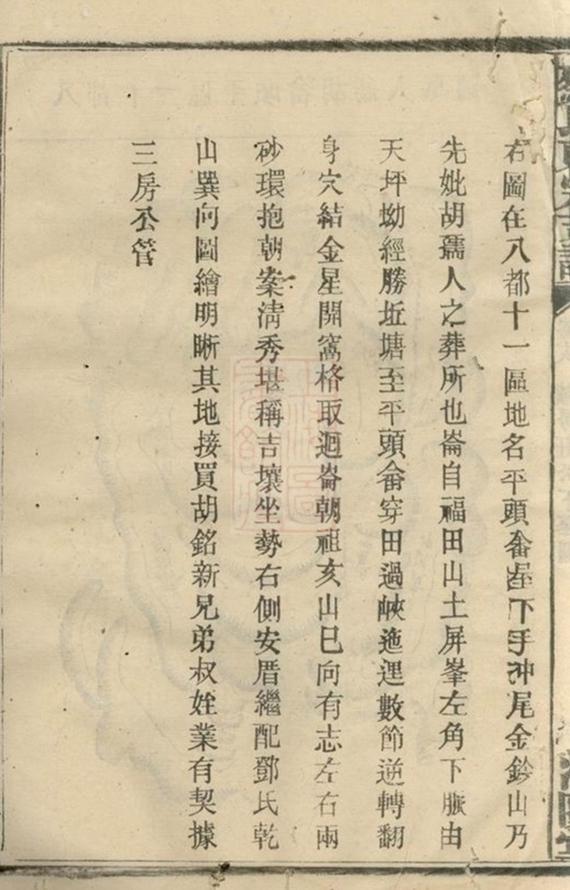 右圖在八都十一區地名平頭畬屋下手冲尾金鈴山乃
先妣胡孺人之葬所也崙自福田山土屏峯左角下脈由
天坪坳經勝坵塘至平頭畬穿田過峽迤逕數節逆轉翻
身穴結金星開窩格取迴崙朝祖亥山巳向有志左右兩
砂環抱朝案清秀堪稱吉壤坐勢右側安厝繼配鄧氏乾
山巽向圖繪明晰其地接買胡銘新兄弟叔姪業有契據
三房公管